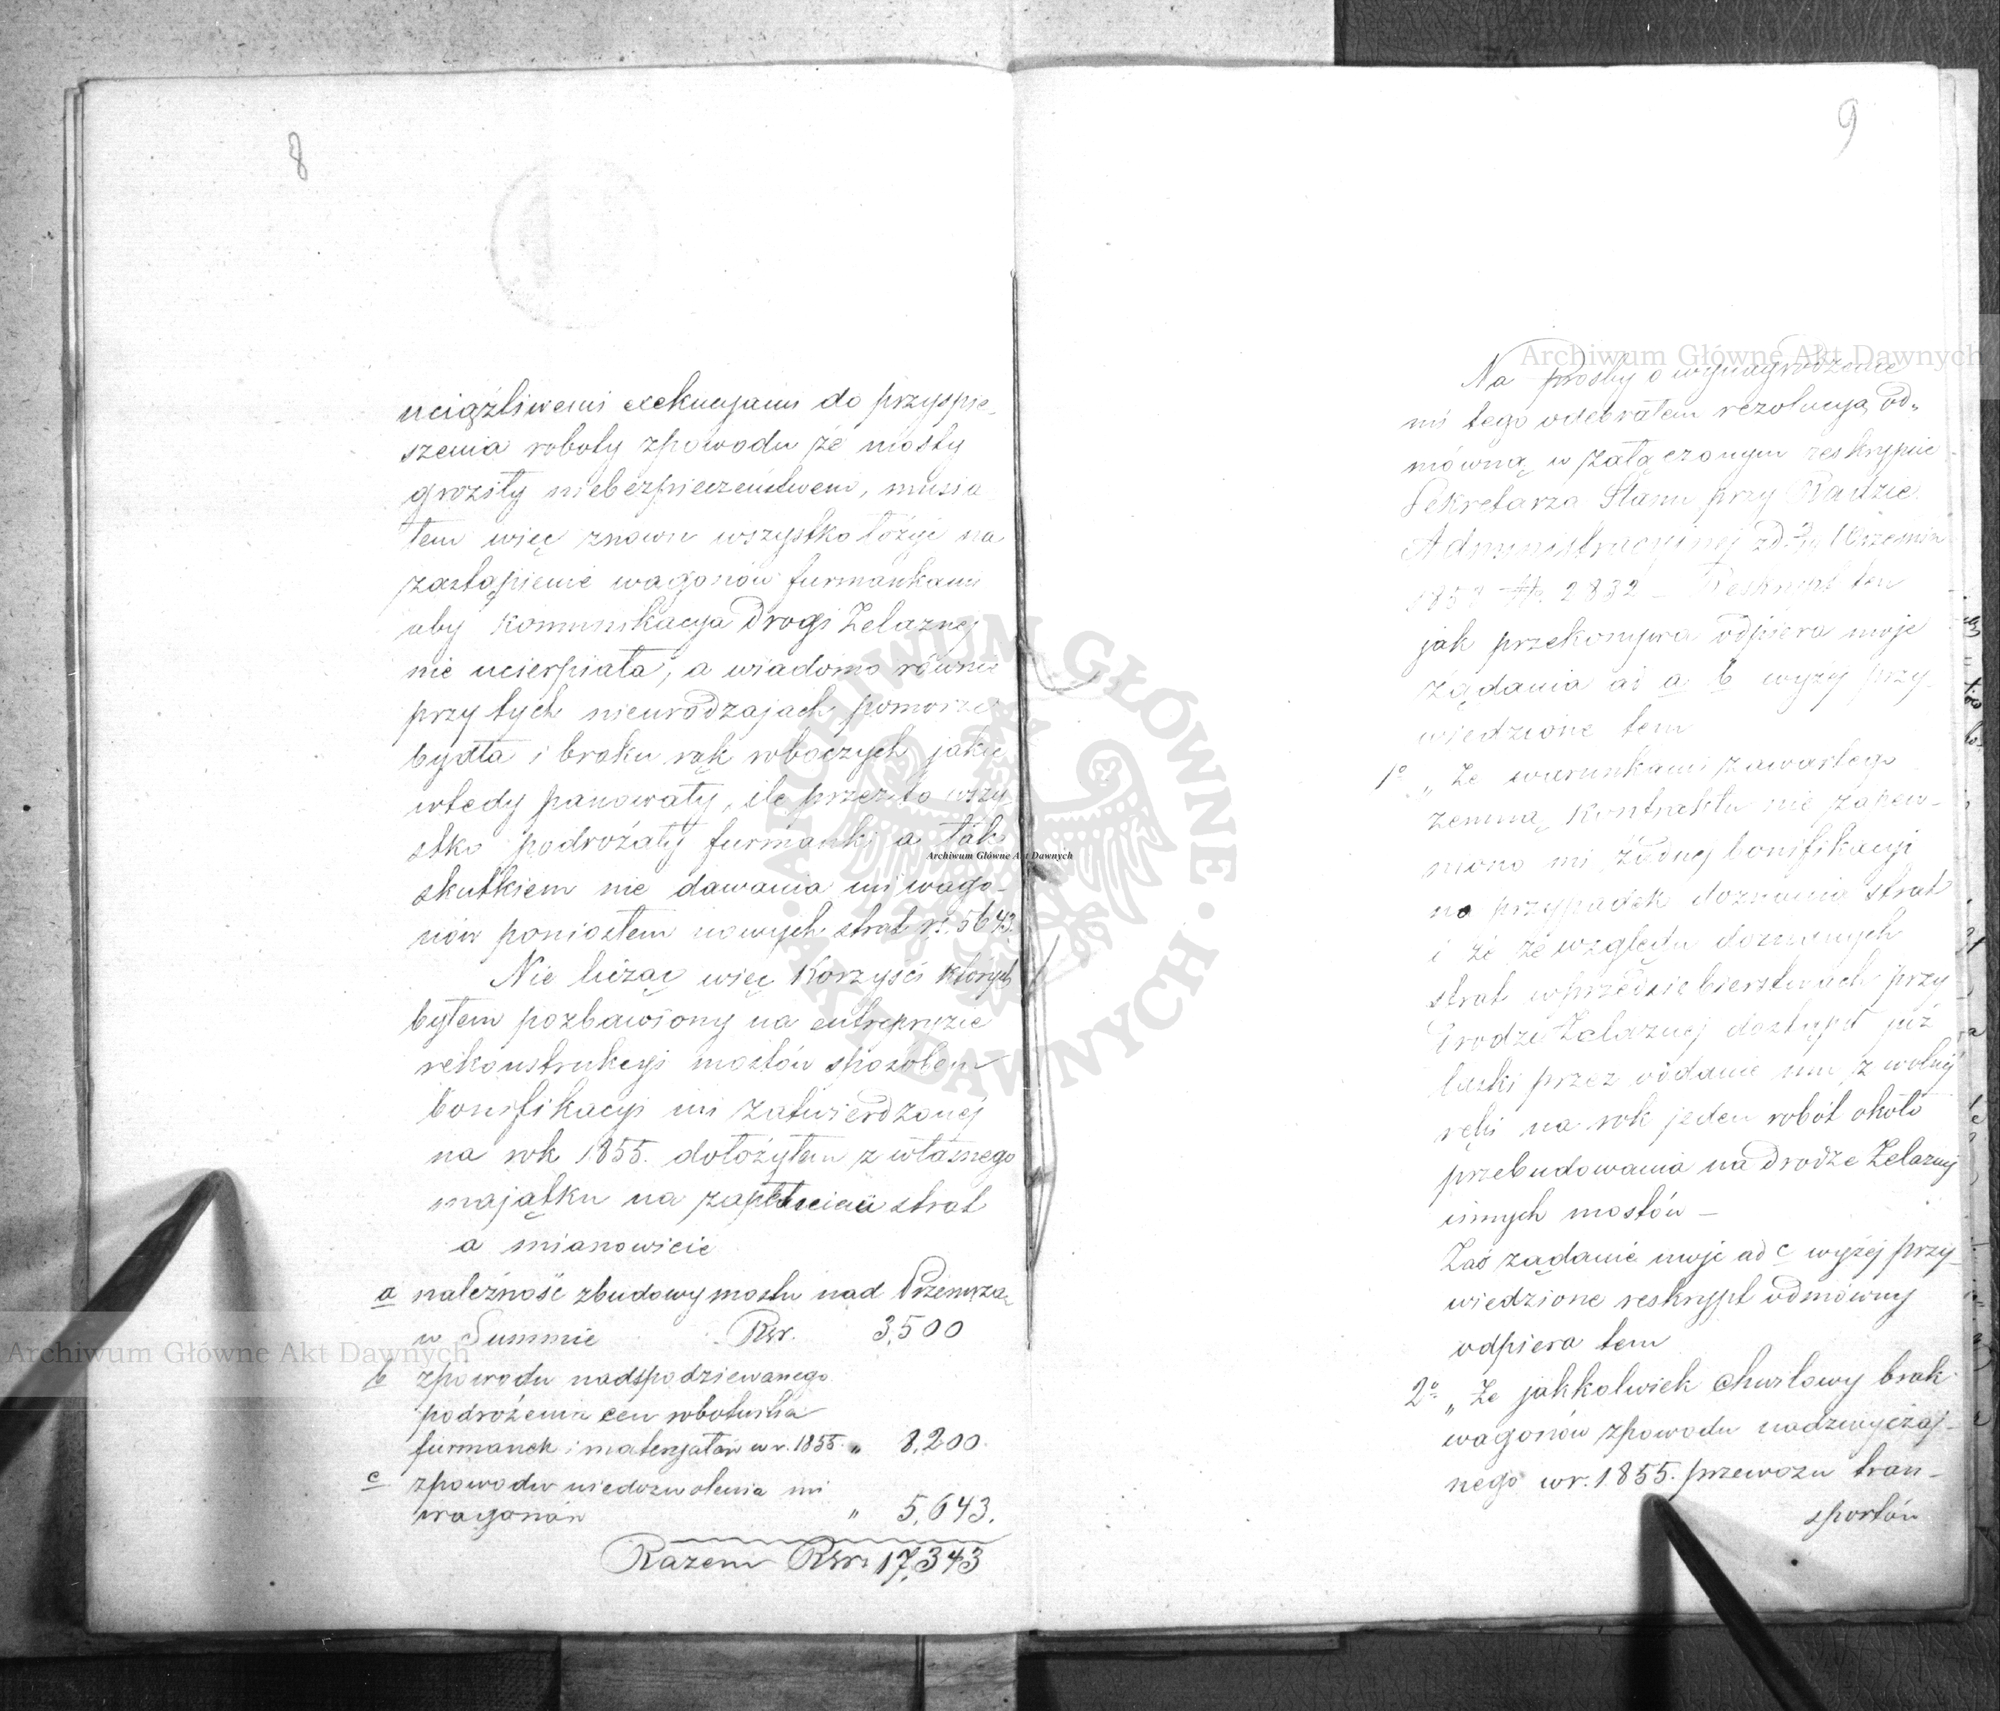 8
uciążliwemi exekucyami do przyspie-
szenia roboty zpowodu że mosty
groziły niebezpieczeństwem, musia
łem więc znowu wszystko łożyć na
zastąpienie wagonów furmankami
aby komunikacya Drogi Żelaznej
nie ucierpiała, a wiadomo równie
przy tych nieurodzajach pomorze
bydła i braku rąk roboczych jakie
wtedy panowały, ile przez to wszy-
stko podrożały furmanki a tak
skutkiem nie dawania mi wago-
nów poniosłem nowych strat rs. 5643.
Nie licząc więc korzyści których
byłem pozbawiony na entrepryzie
rekonstrukcyi mostów sposobem
bonifikacyi mi zatwierdzonej
na rok 1855. dołożyłem z własnego
majątku na zapłacenia strat
a mianowicie
a należność zbudowy mostu nad Przemszą
w Summie Rsr. 3,500
b zpowodu nadspodziewanego
podrożenia cen robotnika
furmanek i materyałów w r. 1855. „ 8,200.
c zpowodu niedozwolenia mi
wagonów „ 5,643.
Razem Rsr. 17,343
9
Na prośby o wynagrodzenie
mi tego odebrałem rezolucyą od-
mówną w załączonym reskrypcie
Sekretarza Stanu przy Radzie
Administracyjnej zd. Września
№ 2832 – Reskrypt ten
jak przekonywa odpiera moje
żądania ad a b wyżej przy-
wiedzione tem
1o „Że warunkami zawartego
zemną kontraktu nie zapew-
niono mi żadnej bonifikacyi
na przypadek doznania strat
i że ze względu doznanych
strat w przedsiebierstwach przy
Drodze Żelaznej dostąpił już
łaski przez oddanie mu z wolnej
ręki na rok jeden robót około
przebudowania na Drodze Żelaznej
innych mostów –
Zaś żądanie moje ad c wyżej przy-
wiedzione reskrypt odmówny
odpiera tem
2o „Że jakkolwiek chwilowy brak
wagonów zpowodu nadzwyczaj-
nego w r. 1855. przewozu tran-
sportów
Archiwum Główne Akt Dawnych
Archiwum Główne Akt Dawnych
Archiwum Główne Akt Dawnych
ARCHIWUM GŁÓWNE AKT DAWNYCH